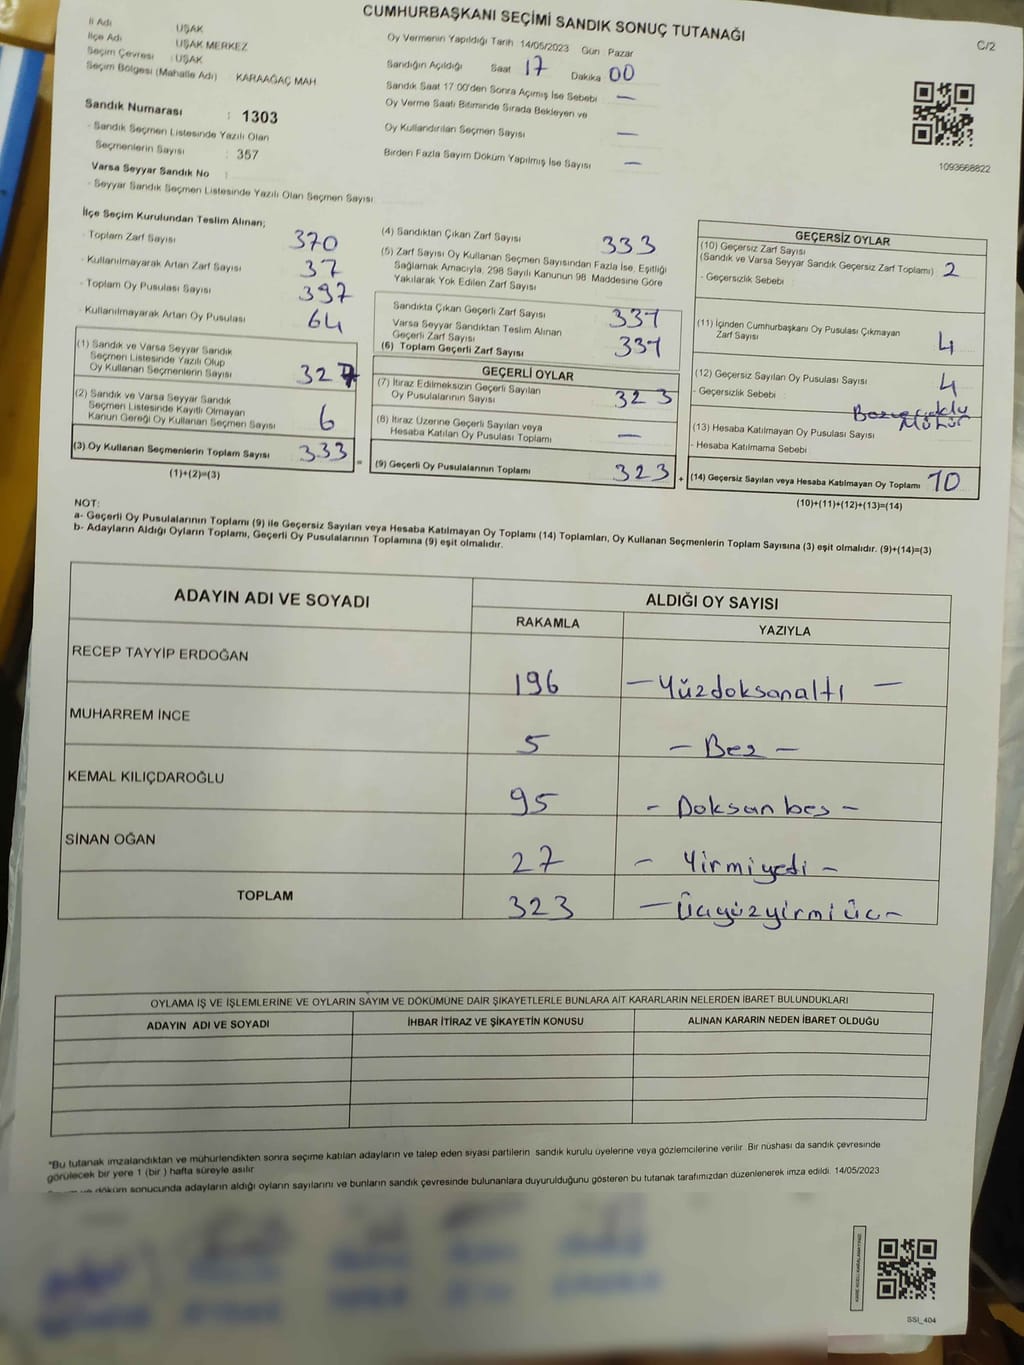 CUMHURBAŞKANI SEÇİMİ SANDIK SONUÇ TUTANAĞI
C/2
İl Adı : UŞAK
İlçe Adı : UŞAK MERKEZ
Seçim Çevresi : UŞAK
Seçim Bölgesi (Mahalle Adı) : KARAAĞAÇ MAH
Sandık Numarası : 1303
- Sandık Seçmen Listesinde Yazılı Olan
Seçmenlerin Sayısı : 357
Varsa Seyyar Sandık No :
- Seyyar Sandık Seçmen Listesinde Yazılı Olan Seçmen Sayısı
Oy Vermenin Yapıldığı Tarih 14/05/2023 Gün Pazar
Sandığın Açıldığı Saat 17 Dakika 00
Sandık Saat 17:00'den Sonra Açımış İse Sebebi —
Oy Verme Saati Bitiminde Sırada Bekleyen ve
Oy Kullandırılan Seçmen Sayısı —
Birden Fazla Sayım Döküm Yapılmış İse Sayısı —
1093668822
İlçe Seçim Kurulundan Teslim Alınan;
- Toplam Zarf Sayısı 370
- Kullanılmayarak Artan Zarf Sayısı 37
- Toplam Oy Pusulası Sayısı 397
- Kullanılmayarak Artan Oy Pusulası 64
(1) Sandık ve Varsa Seyyar Sandık
Seçmen Listesinde Yazılı Olup
Oy Kullanan Seçmenlerin Sayısı 327
(2) Sandık ve Varsa Seyyar Sandık
Seçmen Listesinde Kayıtlı Olmayan
Kanun Gereği Oy Kullanan Seçmen Sayısı 6
(3) Oy Kullanan Seçmenlerin Toplam Sayısı 333 =
(1)+(2)=(3)
(4) Sandıktan Çıkan Zarf Sayısı 333
(5) Zarf Sayısı Oy Kullanan Seçmen Sayısından Fazla İse, Eşitliği
Sağlamak Amacıyla, 298 Sayılı Kanunun 98. Maddesine Göre
Yakılarak Yok Edilen Zarf Sayısı
Sandıkta Çıkan Geçerli Zarf Sayısı 331
Varsa Seyyar Sandıktan Teslim Alınan
Geçerli Zarf Sayısı
(6) Toplam Geçerli Zarf Sayısı 331
GEÇERLİ OYLAR
(7) İtiraz Edilmeksizin Geçerli Sayılan
Oy Pusulalarının Sayısı 323
(8) İtiraz Üzerine Geçerli Sayılan veya
Hesaba Katılan Oy Pusulası Toplamı —
(9) Geçerli Oy Pusulalarının Toplamı 323 +
GEÇERSİZ OYLAR
(10) Geçersiz Zarf Sayısı
(Sandık ve Varsa Seyyar Sandık Geçersiz Zarf Toplamı) 2
- Geçersizlik Sebebi
(11) İçinden Cumhurbaşkanı Oy Pusulası Çıkmayan
Zarf Sayısı 4
(12) Geçersiz Sayılan Oy Pusulası Sayısı 4
- Geçersizlik Sebebi
Mühür
(13) Hesaba Katılmayan Oy Pusulası Sayısı
- Hesaba Katılmama Sebebi
(14) Geçersiz Sayılan veya Hesaba Katılmayan Oy Toplamı 10
(10)+(11)+(12)+(13)=(14)
NOT:
a- Geçerli Oy Pusulalarının Toplamı (9) ile Geçersiz Sayılan veya Hesaba Katılmayan Oy Toplamı (14) Toplamları, Oy Kullanan Seçmenlerin Toplam Sayısına (3) eşit olmalıdır. (9)+(14)=(3)
b- Adayların Aldığı Oyların Toplamı, Geçerli Oy Pusulalarının Toplamına (9) eşit olmalıdır.
ADAYIN ADI VE SOYADI
ALDIĞI OY SAYISI
RAKAMLA YAZIYLA
RECEP TAYYİP ERDOĞAN 196 — Yüzdoksanaltı —
MUHARREM İNCE 5 — Beş —
KEMAL KILIÇDAROĞLU 95 — Doksan beş —
SİNAN OĞAN 27 — Yirmiyedi —
TOPLAM 323 — Üçyüzyirmiüç —
OYLAMA İŞ VE İŞLEMLERİNE VE OYLARIN SAYIM VE DÖKÜMÜNE DAİR ŞİKAYETLERLE BUNLARA AİT KARARLARIN NELERDEN İBARET BULUNDUKLARI
ADAYIN ADI VE SOYADI İHBAR İTİRAZ VE ŞİKAYETİN KONUSU ALINAN KARARIN NEDEN İBARET OLDUĞU
"Bu tutanak imzalandıktan ve mühürlendikten sonra seçime katılan adayların ve talep eden siyasi partilerin sandık kurulu üyelerine veya gözlemcilerine verilir. Bir nüshası da sandık çevresinde
görülecek bir yere 1 (bir ) hafta süreyle asılır
ve döküm sonucunda adayların aldığı oyların sayılarını ve bunların sandık çevresinde bulunanlara duyurulduğunu gösteren bu tutanak tarafımızdan düzenlenerek imza edildi. 14/05/2023
SSİ_404